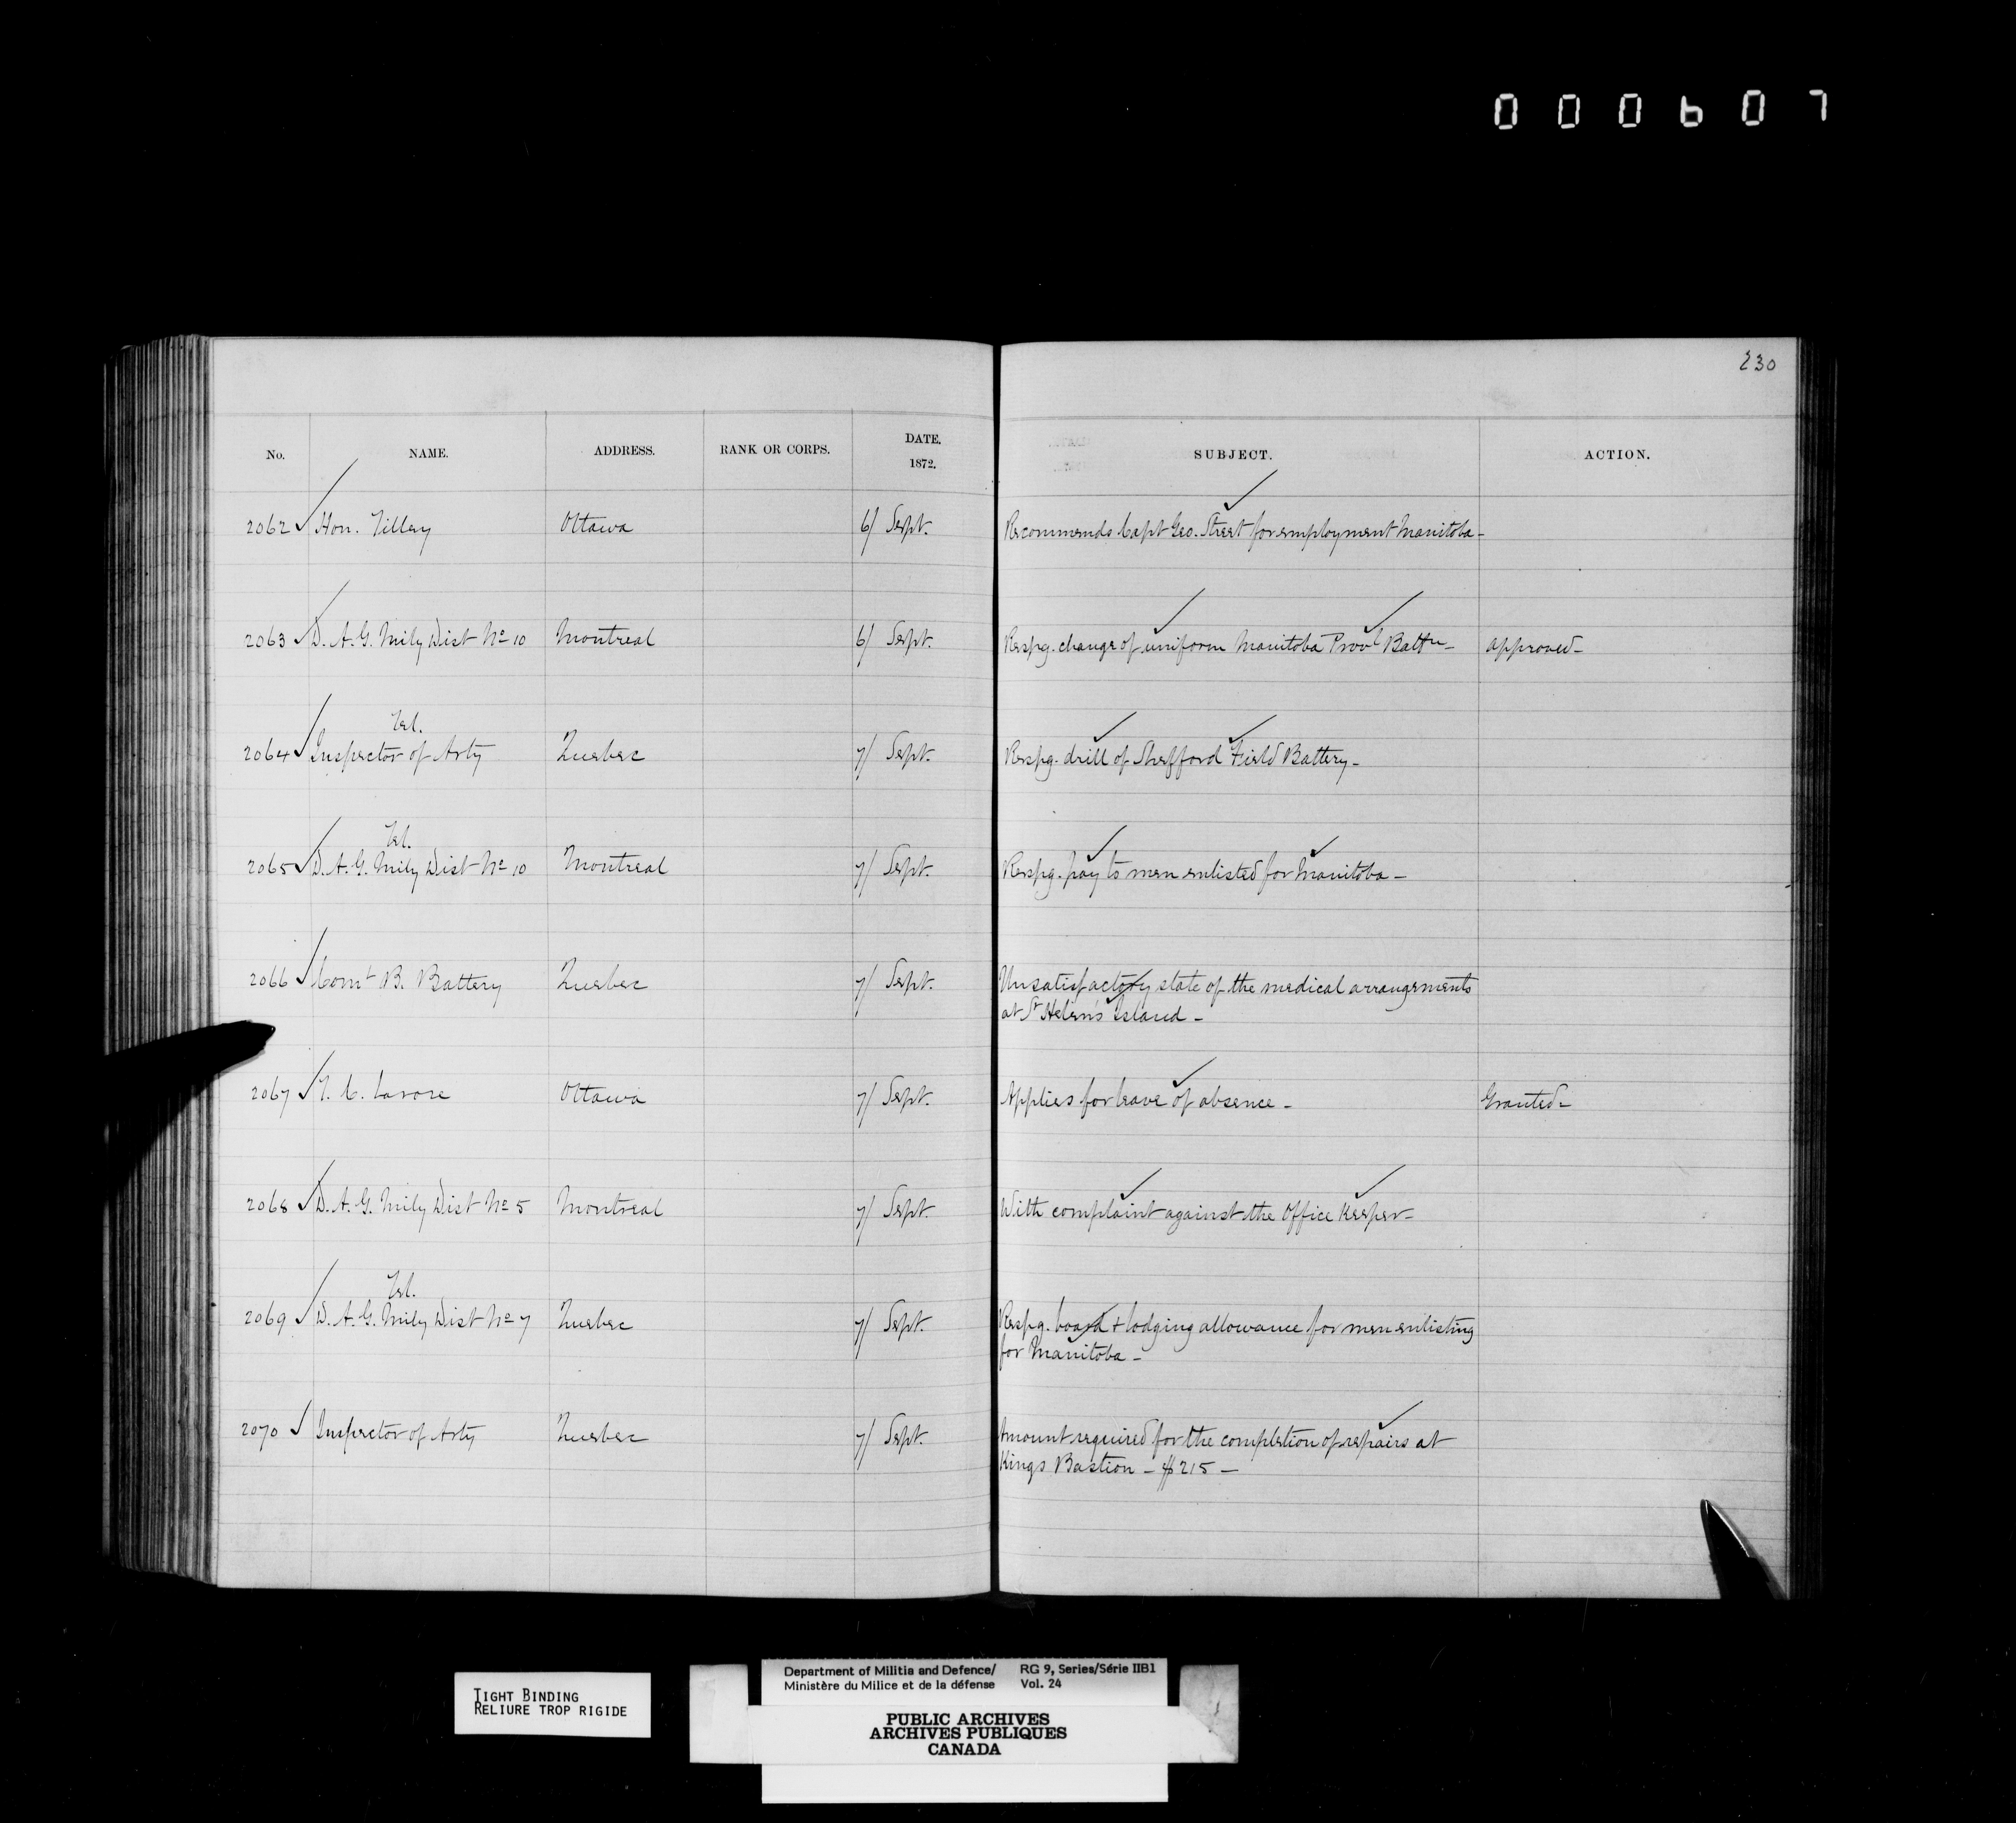 000607
230
No. NAME. ADDRESS. RANK OR CORPS. DATE. 1872. SUBJECT. ACTION.
2062 Hon. Tilley Ottawa 6/ Sept. Recommends Capt Geo. Street for employment Manitoba -
2063 D. A. G. Mily Dist No 10 Montreal 6/ Sept. Respg. change of uniform Manitoba Provl Battn - Approved -
Tel.
2064 Inspector of Arty Quebec 7/ Sept. Respg. drill of Shefford Field Battery -
Tel.
2065 D. A. G. Mily Dist No 10 Montreal 7/ Sept. Respg. pay to men enlisted for Manitoba -
2066 Comt B. Battery Quebec 7/ Sept. Unsatisfactory state of the medical arrangements
at St Helen's Island -
2067 Ottawa 7/ Sept. Applies for leave of absence - Granted -
2068 D. A. G. Mily Dist No 5 Montreal 7/ Sept. With complaint against the Office Keeper -
Tel.
2069 D. A. G. Mily Dist No 7 Quebec 7/ Sept. Respg. board + lodging allowance for men enlisting
for Manitoba -
2070 Inspector of Arty Quebec 7/ Sept. Amount required for the completion of repairs at
Kings Bastion - $215 -
TIGHT BINDING
RELIURE TROP RIGIDE
Department of Militia and Defence/ RG 9, Series/Série IIB1
Ministère du Milice et de la défense Vol. 24
PUBLIC ARCHIVES
ARCHIVES PUBLIQUES
CANADA